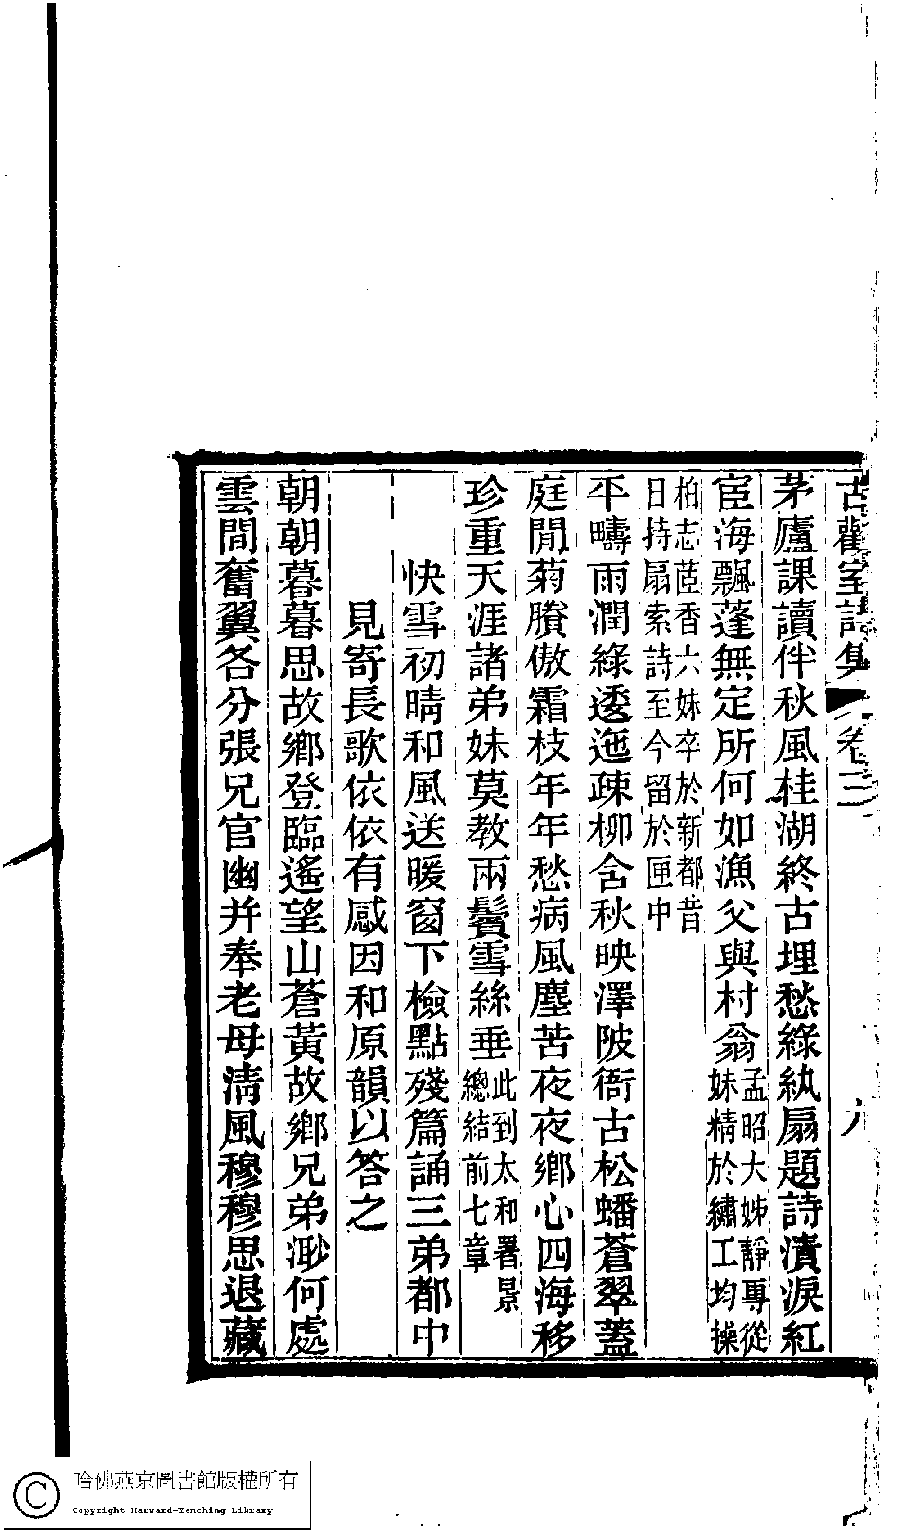 古歡室詩集 卷三 九
茅廬課讀伴秋風桂湖終古埋愁綠紈扇題詩漬淚紅
宦海飄蓬無定所何如漁父與村翁孟昭大姊靜專從妹精於繡工均操
柏志茝香六妹卒於新都昔日持扇索詩至今留於匣中
平疇雨潤綠逶迤疎柳含秋映澤陂衙古松蟠蒼翠蓋
庭閒菊賸傲霜枝年年愁病風塵苦夜夜鄉心四海移
珍重天涯諸弟妹莫教兩鬢雪絲垂此到太和署景總結前七章
快雪初晴和風送暖窗下檢點殘篇誦三弟都中
見寄長歌依依有感因和原韻以答之
朝朝暮暮思故鄉登臨遙望山蒼黃故鄉兄弟渺何處
雲間奮翼各分張兄官幽并奉老母清風穆穆思退藏
哈佛燕京圖書館版權所有
Copyright Harvard-Yenching Library